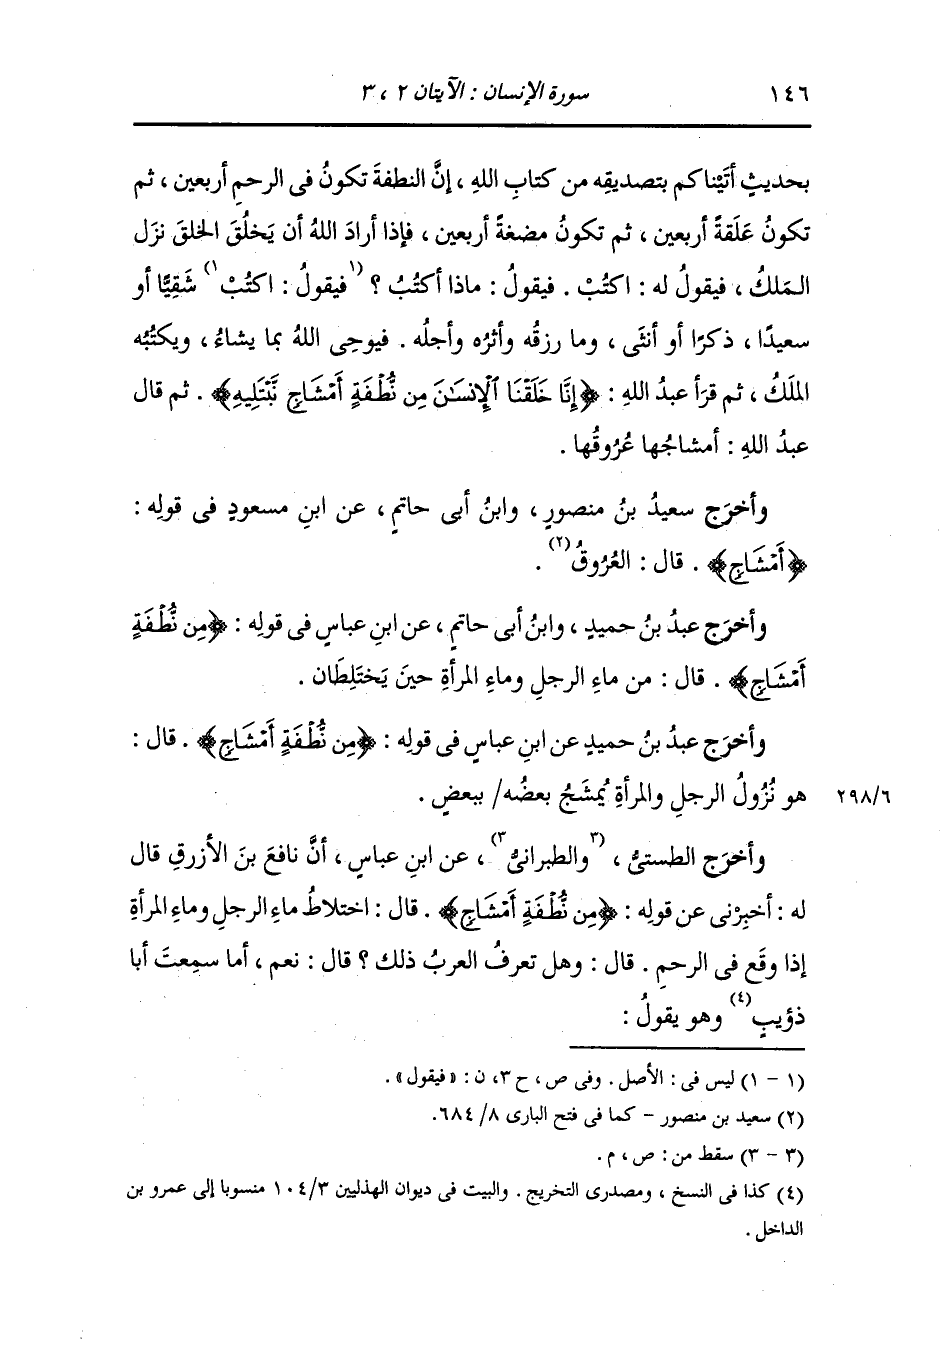 ١٤٦ سورة الإنسان : الآيتان ٢ ، ٣
بحديثٍ أتَيْناكم بتصديقِه من كتابِ اللهِ ، إنَّ النطفةَ تكونُ فى الرحمِ أربعين ، ثم
تكونُ عَلَقةً أربعين ، ثم تكونُ مضغةً أربعين ، فإذا أرادَ اللهُ أن يَخلُقَ الخلقَ نزَل
المَلكُ ، فيقولُ له : اكتُبْ . فيقولُ : ماذا أكتُبُ ؟ (١فيقولُ : اكتُبْ١) شَقِيًّا أو
سعيدًا ، ذكرًا أو أنثَى ، وما رزقُه وأثرُه وأجلُه . فيوحِى اللهُ بما يشاءُ ، ويكتُبُه
الملَكُ ، ثم قرَأ عبدُ اللهِ : ﴿إِنَّا خَلَقْنَا ٱلْإِنسَٰنَ مِن نُّطْفَةٍ أَمْشَاجٍ نَّبْتَلِيهِ﴾ . ثم قال
عبدُ اللهِ : أمشاجُها عُرُوقُها .
وأخرَج سعيدُ بنُ منصورٍ ، وابنُ أبى حاتمٍ ، عن ابنِ مسعودٍ فى قولِه :
﴿أَمْشَاجٍ﴾ . قال : العُرُوقُ(٢) .
وأخرَج عبدُ بنُ حميدٍ ، وابنُ أبى حاتمٍ ، عن ابنِ عباسٍ فى قولِه : ﴿مِن نُّطْفَةٍ
أَمْشَاجٍ﴾ . قال : من ماءِ الرجلِ وماءِ المرأةِ حينَ يَختَلِطَان .
وأخرَج عبدُ بنُ حميدٍ عن ابنِ عباسٍ فى قولِه : ﴿مِن نُّطْفَةٍ أَمْشَاجٍ﴾ . قال :
هو نُزُولُ الرجلِ والمرأةِ يُمشَجُ بعضُه/ ببعضٍ . ٢٩٨/٦
وأخرَج الطستىُّ ، (٣والطبرانىُّ٣) ، عن ابنِ عباسٍ ، أنَّ نافعَ بنَ الأزرقِ قال
له : أخبِرْنى عن قولِه : ﴿مِن نُّطْفَةٍ أَمْشَاجٍ﴾ . قال : اختلاطُ ماءِ الرجلِ وماءِ المرأةِ
إذا وقَع فى الرحمِ . قال : وهل تعرفُ العربُ ذلك ؟ قال : نعم ، أما سمِعتَ أبا
ذؤيبٍ(٤) وهو يقولُ :
(١ - ١) ليس فى : الأصل . وفى ص ، ح ٣، ن : «فيقول» .
(٢) سعيد بن منصور - كما فى فتح البارى ٨/ ٦٨٤.
(٣ - ٣) سقط من : ص ، م .
(٤) كذا فى النسخ ، ومصدرى التخريج . والبيت فى ديوان الهذليين ١٠٤/٣ منسوبا إلى عمرو بن
الداخل .